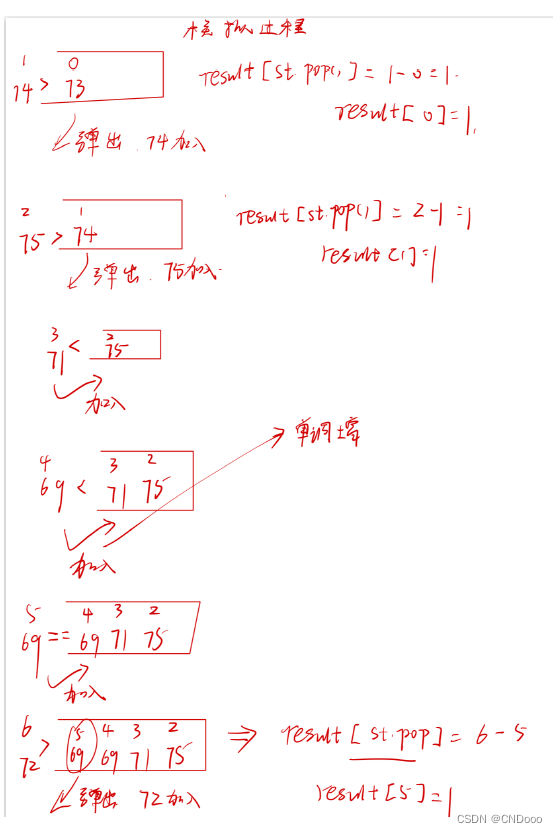 模拟过程
1 0
74 > 73
result[st.pop()] = 1-0=1.
result[0]=1.
弹出.74加入
2 1
75 > 74
result[st.pop()] = 2-1=1
result[1]=1
弹出.75加入.
3 2
71 < 75
加入
单调增
4 3 2
69 < 71 75
加入
5 4 3 2
69 == 69 71 75
加入
6 5 4 3 2
72 > 69 69 71 75
⇒ result[st.pop] = 6-5
弹出 72加入
result[5]=1
CSDN @CNDooo